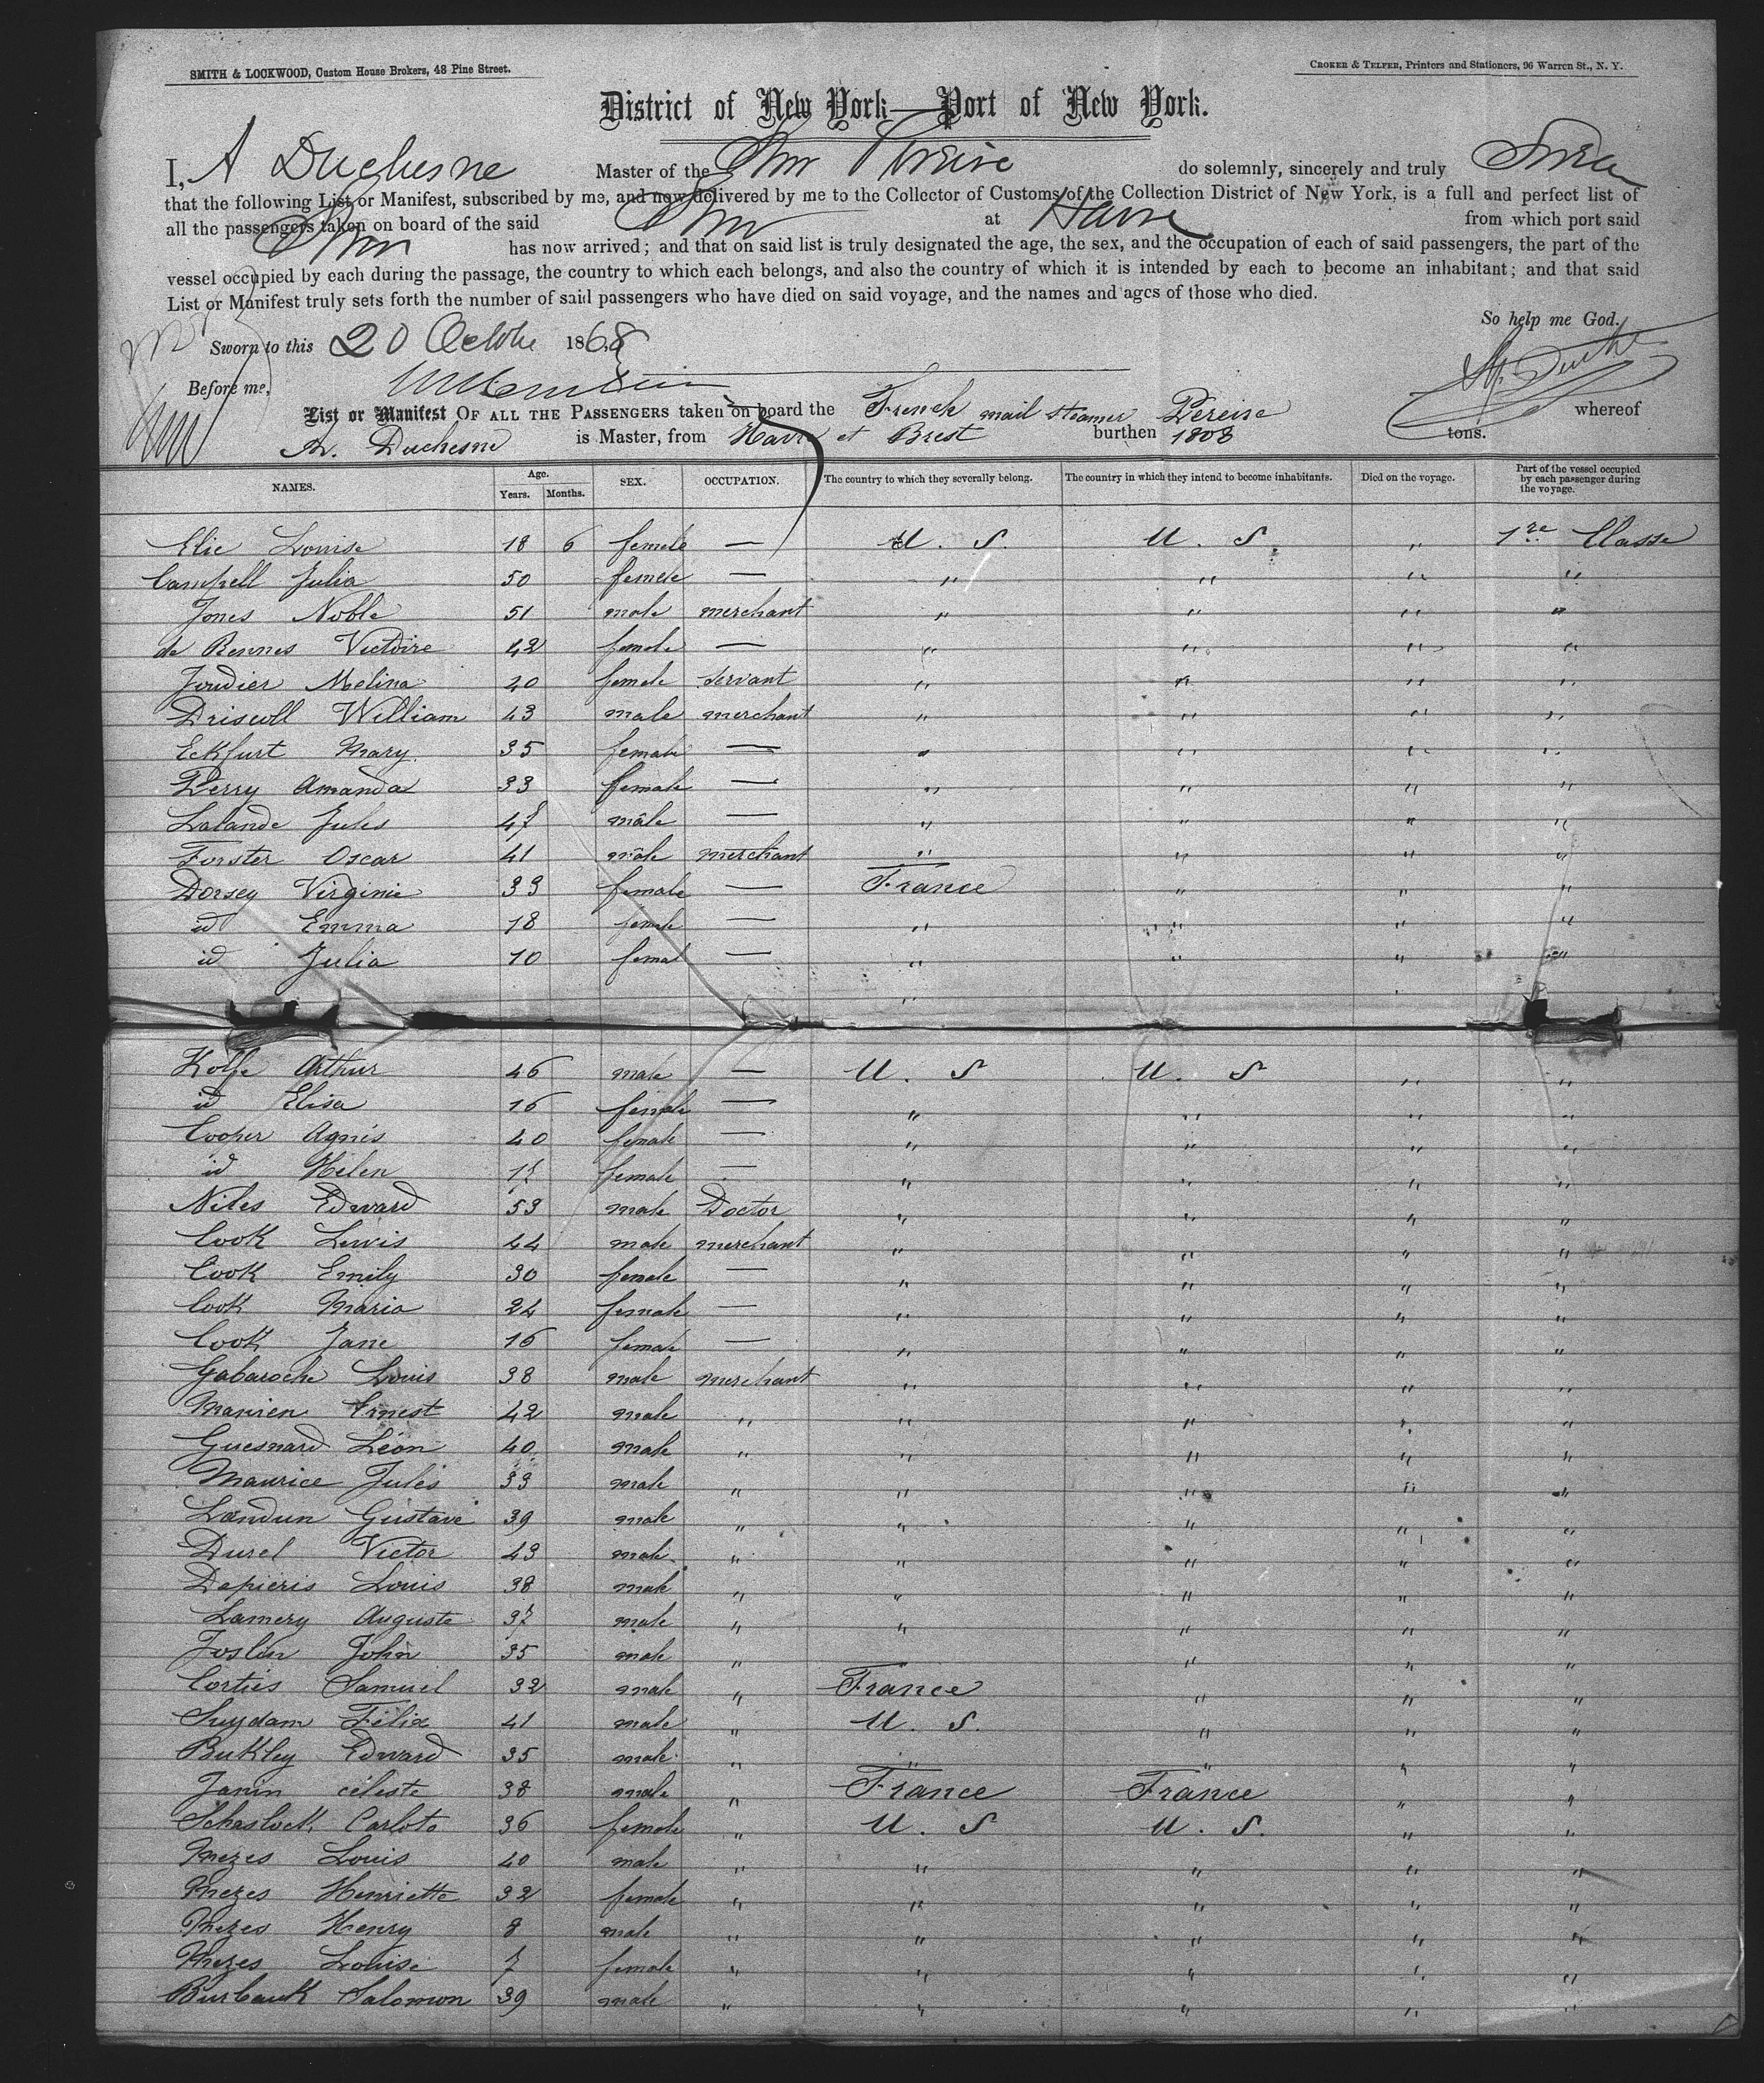 SMITH & LOCKWOOD, Custom House Brokers, 48 Pine Street.
CROKER & TELFER, Printers and Stationers, 96 Warren St., N. Y.
District of New York—Port of New York.
I, A Duchesne Master of the Smr Pereire do solemnly, sincerely and truly Swear
that the following List or Manifest, subscribed by me, and now delivered by me to the Collector of Customs of the Collection District of New York, is a full and perfect list of
all the passengers taken on board of the said Smr at Havre from which port said
Smr has now arrived; and that on said list is truly designated the age, the sex, and the occupation of each of said passengers, the part of the
vessel occupied by each during the passage, the country to which each belongs, and also the country of which it is intended by each to become an inhabitant; and that said
List or Manifest truly sets forth the number of said passengers who have died on said voyage, and the names and ages of those who died.
So help me God.
Sworn to this 20 Octobe 1868
Before me,
List or Manifest OF ALL THE PASSENGERS taken on board the French mail steamer Pereire whereof
A. Duchesne is Master, from Havre et Brest burthen 1808 tons.
NAMES. Age. Years. Months. SEX. OCCUPATION. The country to which they severally belong. The country in which they intend to become inhabitants. Died on the voyage. Part of the vessel occupied by each passenger during the voyage.
Elie Louise 18 6 female — U. S. U. S. " 1re Classe
Campell Julia 50 female — " " " "
Jones Noble 51 male merchant " " " "
de Rennes Victoire 42 female — " " " "
Joudier Melina 20 female servant " " " "
Driscoll William 43 male merchant " " " "
Eckfurt Mary 35 female — " " " "
Perry Amanda 33 female — " " " "
Lalande Jules 47 male — " " " "
Forster Oscar 41 male merchant " " " "
Dorsey Virginie 33 female — France " " "
id Emma 18 female — " " " "
id Julia 10 femal — " " " "
"
Rolfe Arthur 46 male — U. S U. S " "
id Elisa 16 female — " " " "
Cooper Agnés 40 female — " " " "
id Helen 17 female — " " " "
Niles Edward 53 male Doctor " " " "
Cook Lewis 44 male merchant " " " "
Cook Emily 30 female — " " " "
Cook Maria 24 female — " " " "
Cook Jane 16 female — " " " "
Gabaroche Louis 38 male merchant " " " "
Manren Ernest 42 male " " " " "
Guesnard Léon 40 male " " " " "
Maurice Jules 33 male " " " " "
Landun Gustave 39 male " " " " "
Durel Victor 43 male " " " " "
Depieris Louis 38 male " " " " "
Lamery Auguste 37 male " " " " "
Joslin John 35 male " " " "
Corties Samuel 32 male " France " " "
Suydam Félix 41 male " U. S. " " "
Bukley Edward 35 male " " " " "
Janin céleste 38 male " France France " "
Schaslock Carloto 36 female " U. S U. S. " "
Mezes Louis 40 male " " " " "
Mezes Henriette 32 female " " " " "
Mezes Henry 8 male " " " " "
Mezes Louise 7 female " " " " "
Burbank Salomon 39 male " " " " "